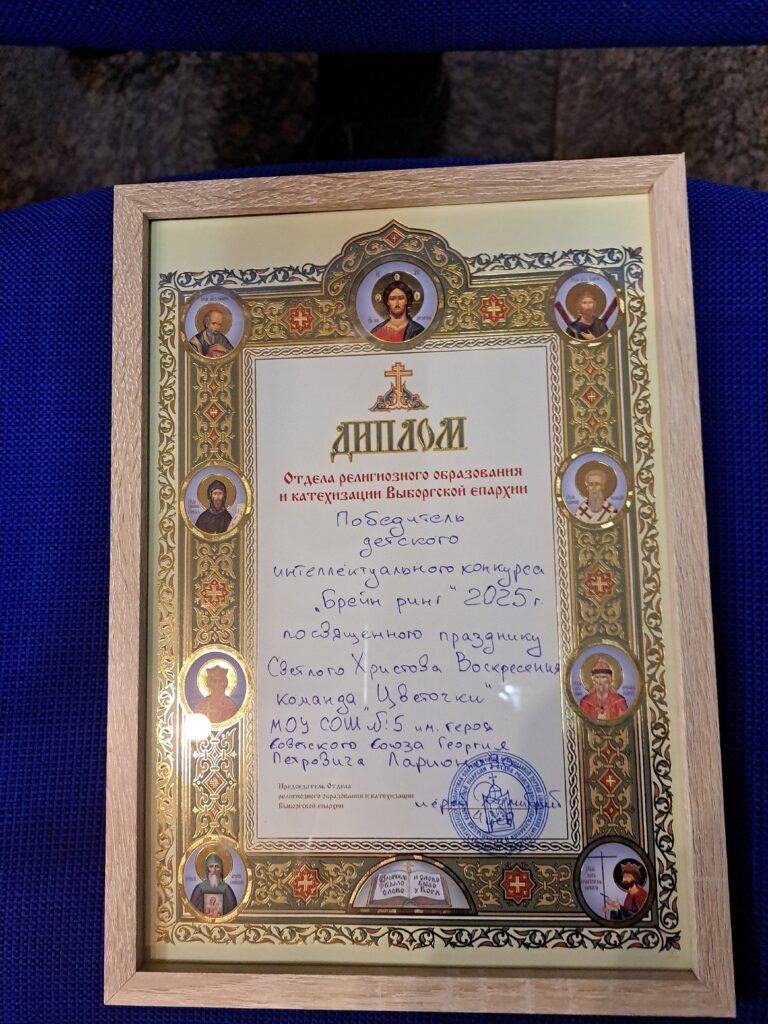 ДИПЛОМ
Отдела религиозного образования
и катехизации Выборгской епархии
Победитель
детского
интеллектуального конкурса
„Брейн ринг" 2025г.
посвященного празднику
Светлого Христова Воскресения
команда „Цветочки"
МОУ СОШ №5 им. героя
Советского Союза Георгия
Петровича Ларионова
Председатель Отдела
религиозного образования и катехизации
Выборгской епархии
иерей
В начале было слово
и слово было у Бога